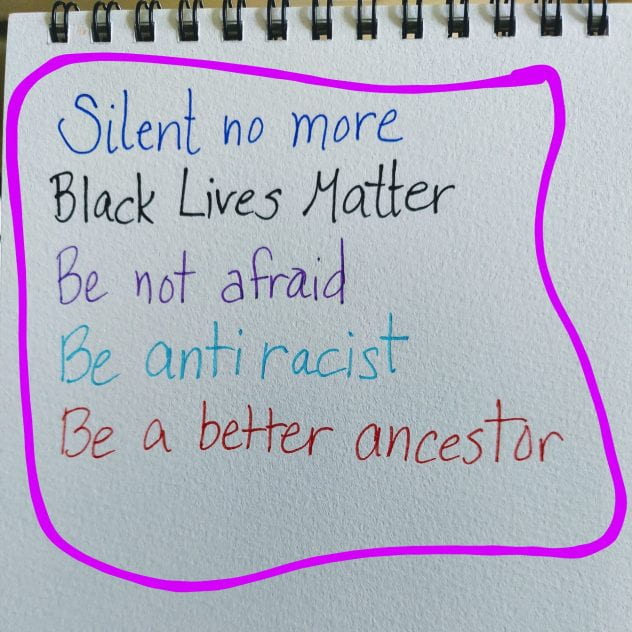 Silent no more
Black Lives Matter
Be not afraid
Be anti racist
Be a better ancestor